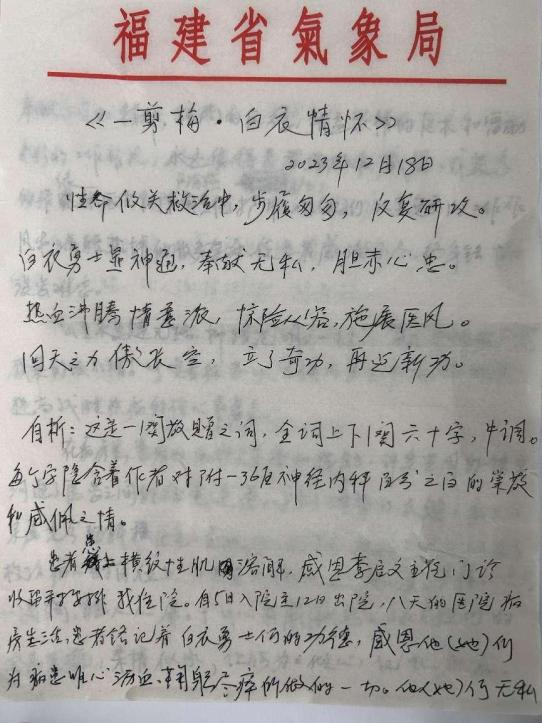 福建省氣象局
《一剪梅·白衣情怀》
2023年12月18日
性命攸关救治中,步履匆匆,反复研攻。
白衣勇士显神通,奉献无私,胆赤心忠。
热血沸腾情意浓,惊险从容,施展医风。
回天之力傲长空,立了奇功,再迈新功。
自析:这是一阕敬赠之词,全词上下阕六十字,中调。
每个字隐含着作者对附一36层神经内科医务之的崇敬
和感佩之情。
患者患上横纹肌溶解,感恩李启文主任门诊
收留并安排我住院。自5日入院至12日出院,八天的医院病
房生活,患者铭记着白衣勇士们的功德,感恩他(她)们
为病患呕心沥血、鞠躬尽瘁所做的一切。他(她)们无私